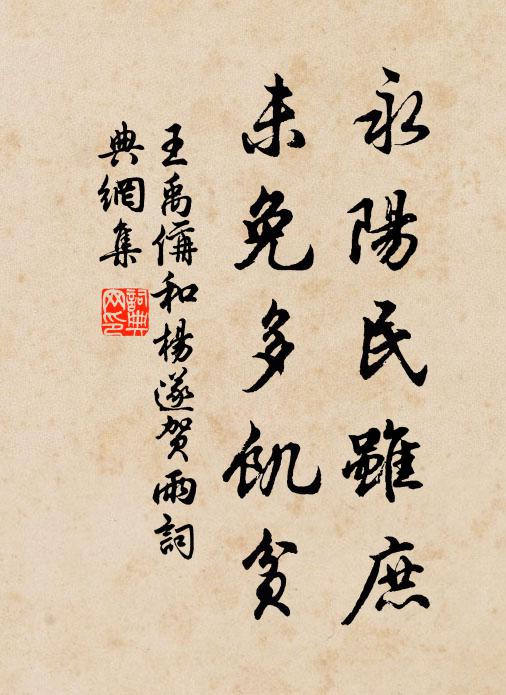 永陽民雖庶
未免多飢貧
王禹偁和楊遂賀雨詞
典網集
詞典網印